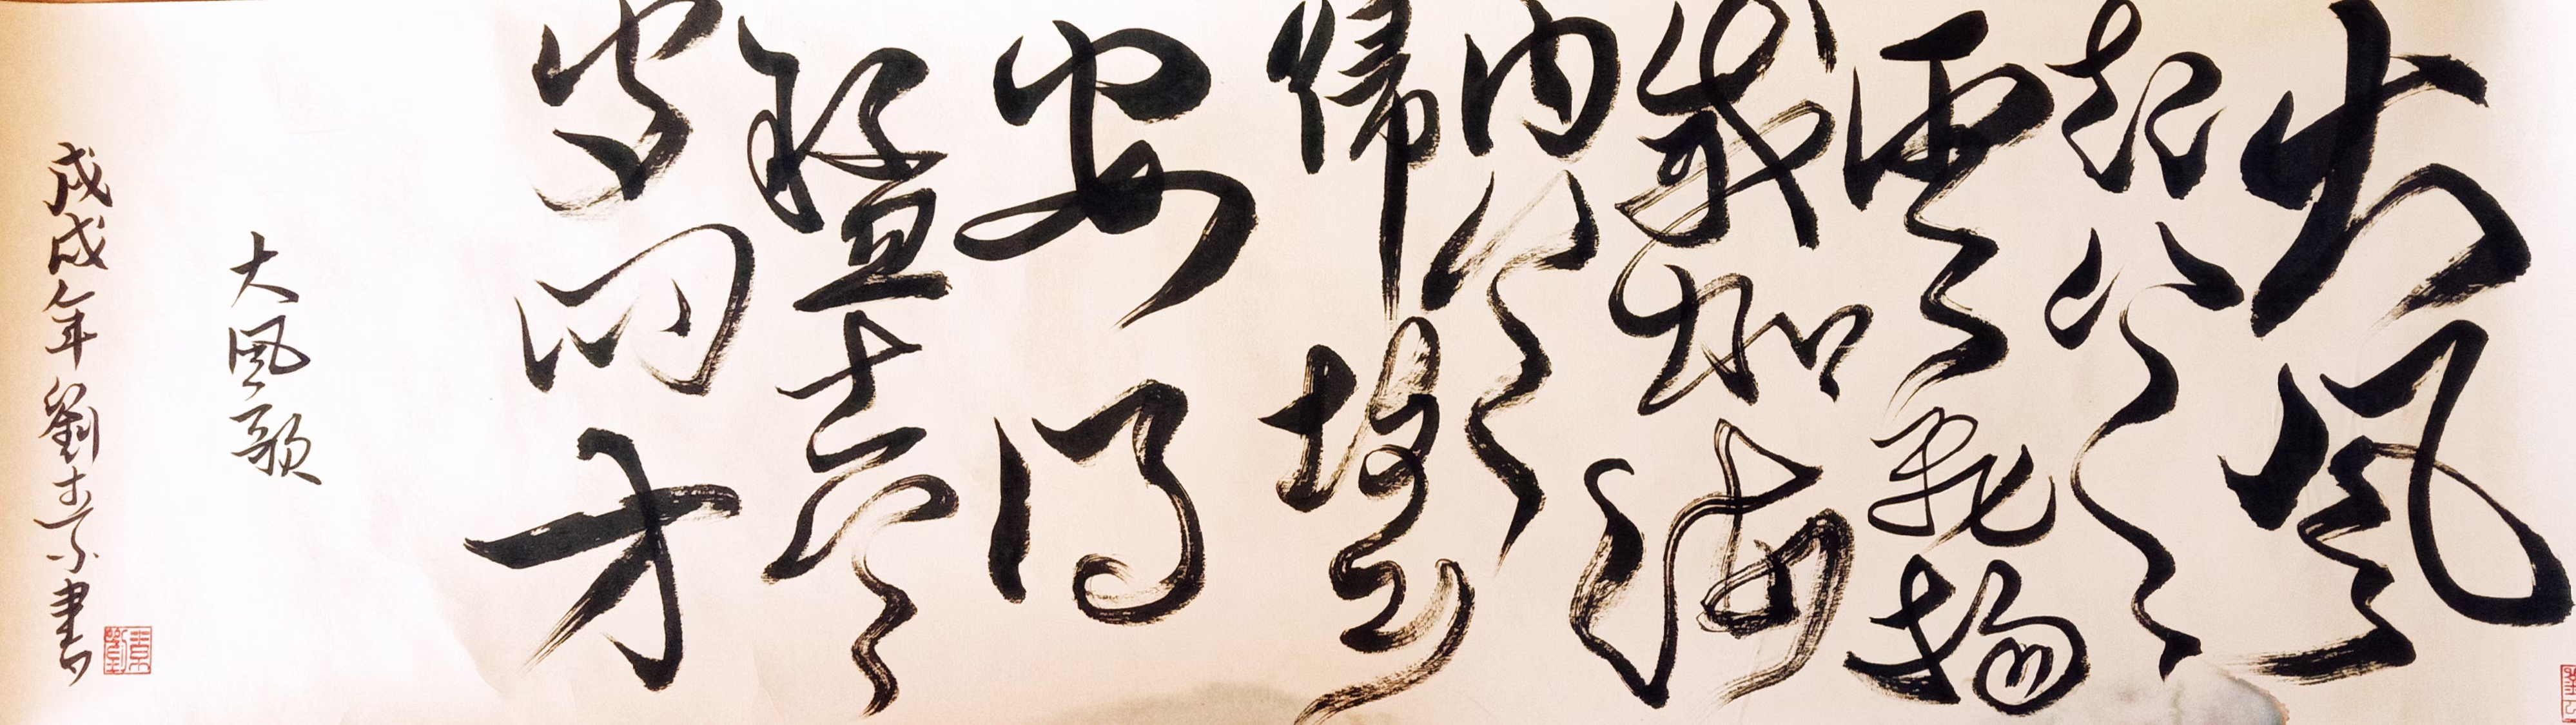 大風
起兮
雲飛揚
威加海
内兮
歸故鄉
安得
猛士兮
守四方
大風歌
戊戌年劉書